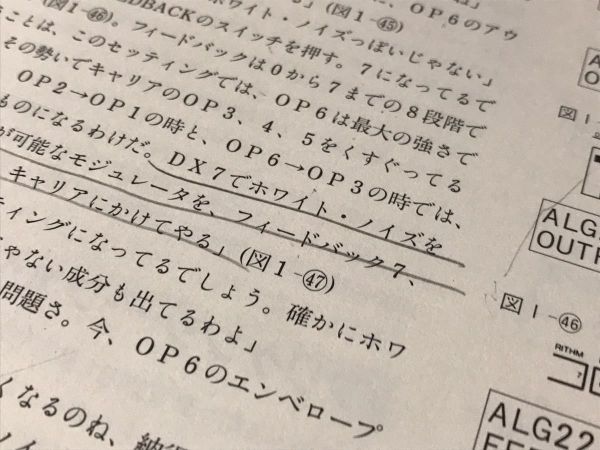 ホワイト・ノイズっぽいじゃない」
(図1-㊺)
OP6のアウ
(図1-㊻)。フィードバックは0から7までの8段階で
EDBACKのスイッチを押す。7になってるで
ことは、このセッティングでは、OP6は最大の強さで
その勢いでキャリアのOP3、4、5をくすぐってる
OP2→OP1の時と、OP6→OP3の時では、
ものになるわけだ。DX7でホワイト・ノイズを
が可能なモジュレータを、フィードバック7、
キャリアにかけてやる」(図1-㊼)
ティングになってるでしょう。確かにホワ
ゃない成分も出てるわよ」
問題さ。今、OP6のエンベロープ
くなるのね、
図1-
ALG2
OUTP
図1-㊻
RITHM
7
ALG22